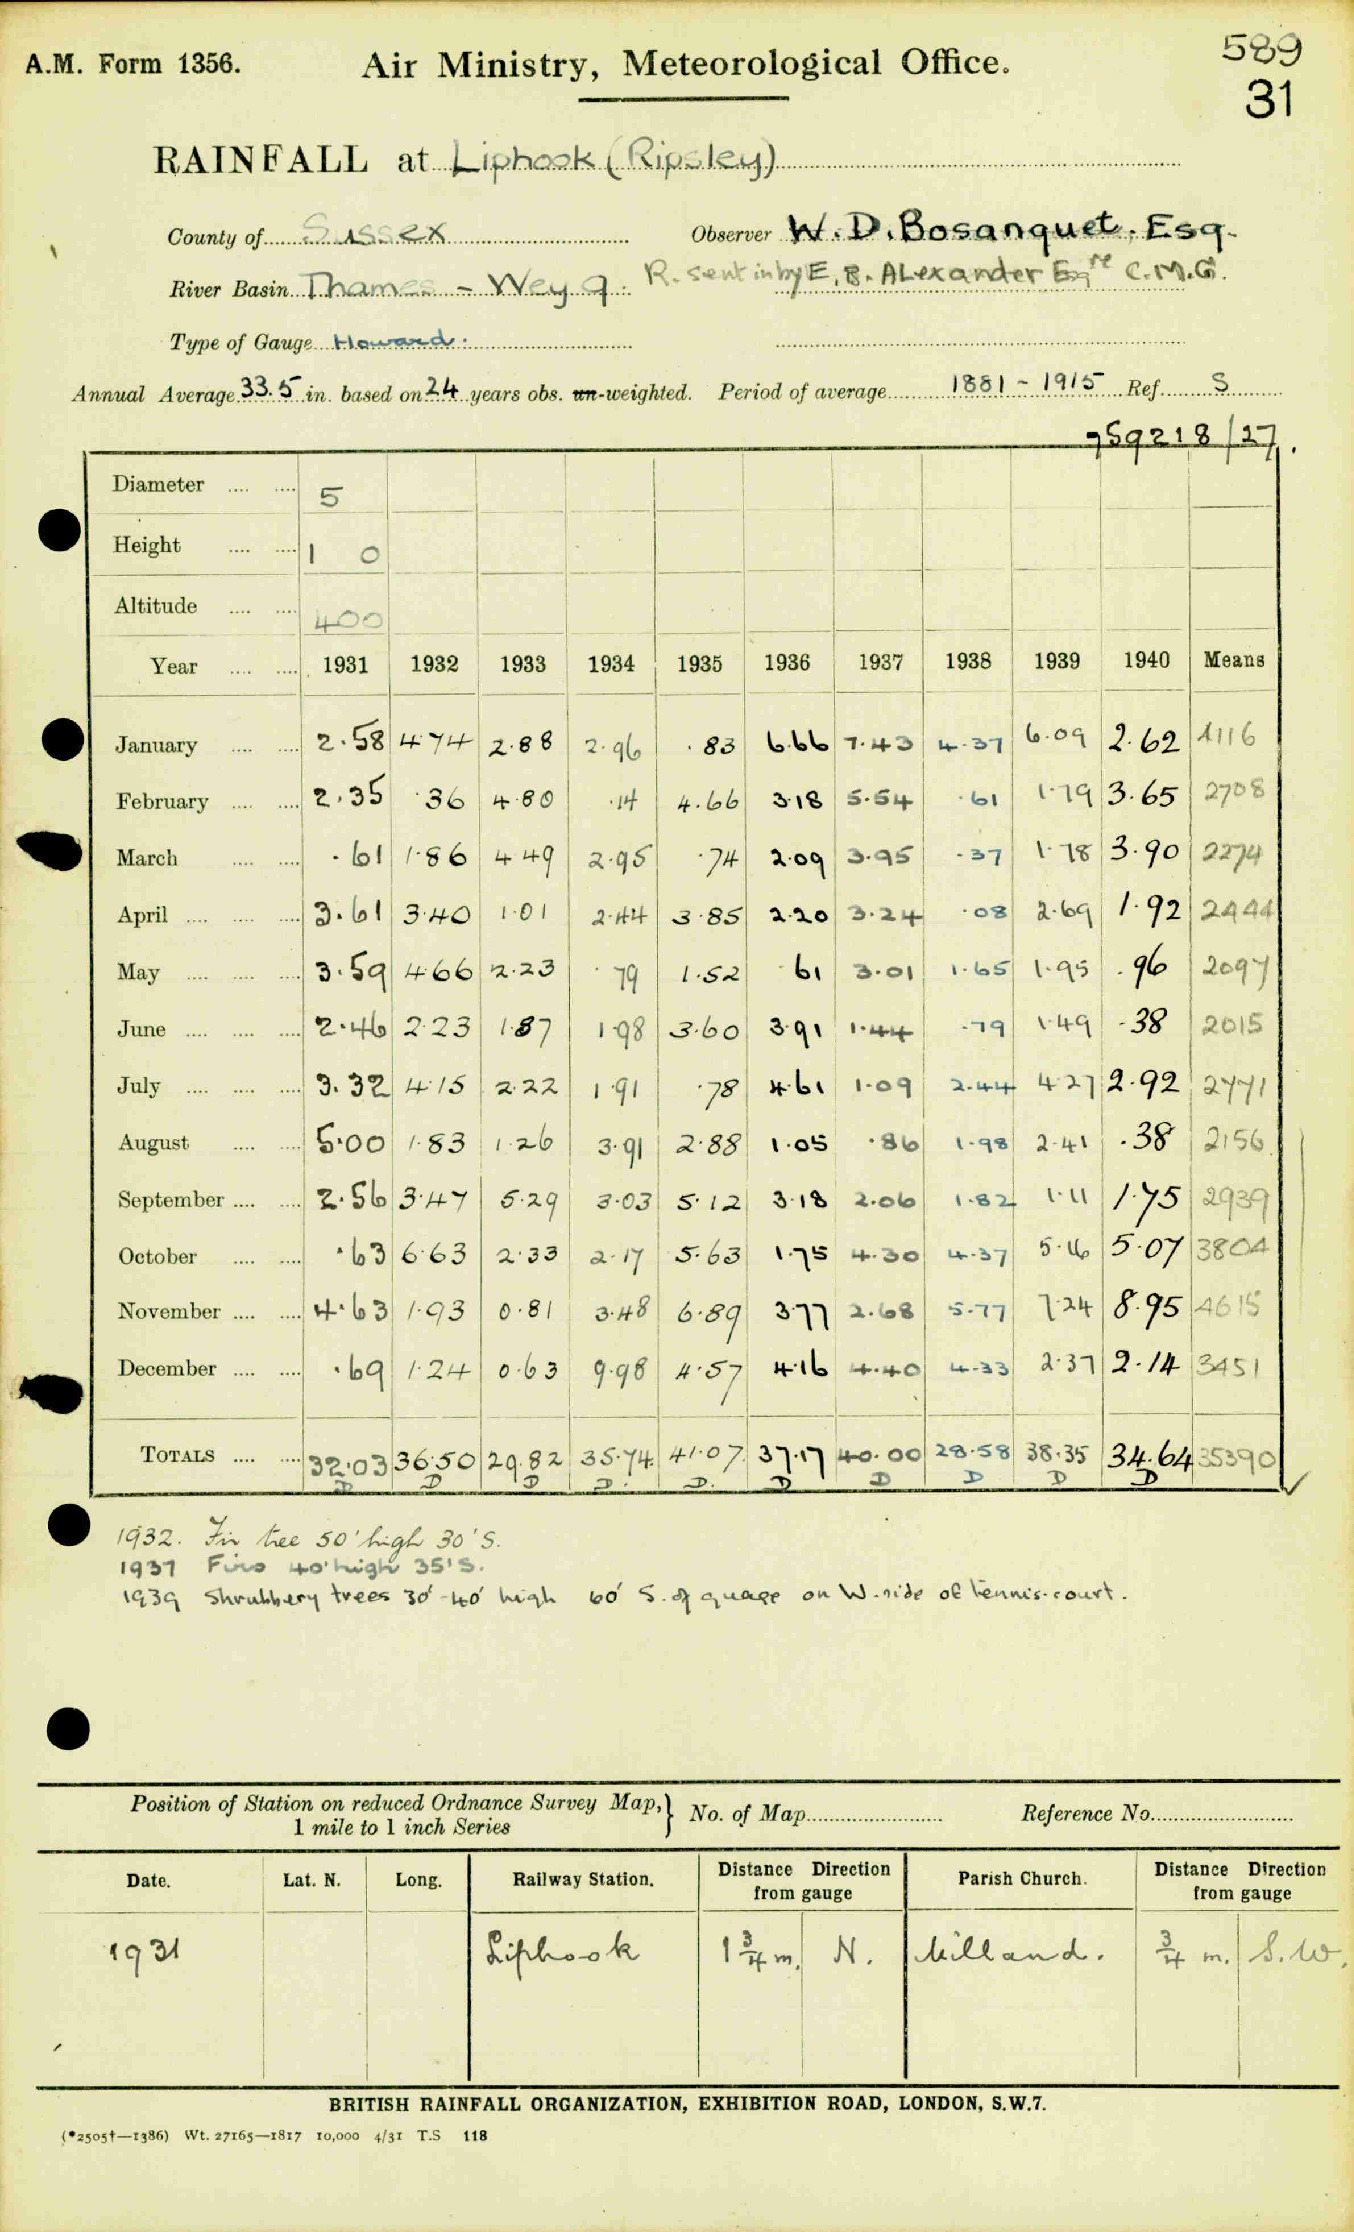 A.M. Form 1356. Air Ministry, Meteorological Office. 589
31
RAINFALL at Liphook (Ripsley)
County of Sussex Observer W. D. Bosanquet, Esq.
River Basin Thames - Wey 9. R. sent in by E. B. Alexander Esqre C.M.G.
Type of Gauge Howard.
Annual Average 33.5 in. based on 24 years obs. un-weighted. Period of average 1881 - 1915 Ref. S
759218/27.
Diameter .... .... 5
Height .... .... 1 0
Altitude .... .... 400
Year .... .... 1931 1932 1933 1934 1935 1936 1937 1938 1939 1940 Means
January .... .... 2.58 4.74 2.88 2.96 .83 6.66 7.43 4.37 6.09 2.62 4116
February .... .... 2.35 .36 4.80 .14 4.66 3.18 5.54 .61 1.79 3.65 2708
March .... .... .61 1.86 4.49 2.95 .74 2.09 3.95 .37 1.78 3.90 2274
April .... .... .... 3.61 3.40 1.01 2.44 3.85 2.20 3.24 .08 2.69 1.92 2444
May .... .... .... 3.59 4.66 2.23 .79 1.52 .61 3.01 1.65 1.95 .96 2097
June .... .... .... 2.46 2.23 1.87 1.98 3.60 3.91 1.44 .79 1.49 .38 2015
July .... .... .... 3.32 4.15 2.22 1.91 .78 4.61 1.09 2.44 4.27 2.92 2771
August .... .... 5.00 1.83 1.26 3.91 2.88 1.05 .86 1.98 2.41 .38 2156
September .... .... 2.56 3.47 5.29 3.03 5.12 3.18 2.06 1.82 1.11 1.75 2939
October .... .... .63 6.63 2.33 2.17 5.63 1.75 4.30 4.37 5.16 5.07 3804
November .... .... 4.63 1.93 0.81 3.48 6.89 3.77 2.68 5.77 7.24 8.95 4615
December .... .... .69 1.24 0.63 9.98 4.57 4.16 4.40 4.33 2.37 2.14 3451
TOTALS .... .... 32.03 36.50 29.82 35.74 41.07 37.17 40.00 28.58 38.35 34.64 35390
D D D D. D. D D D D D
1932. Fir tree 50' high 30' S.
1937 Firs 40' high 35' S.
1939 Shrubbery trees 30'-40' high 60' S. of guage on W. side of tennis-court.
Position of Station on reduced Ordnance Survey Map,} No. of Map Reference No.
1 mile to 1 inch Series
Date. Lat. N. Long. Railway Station. Distance Direction from gauge Parish Church. Distance Direction from gauge
1931 Liphook 1 3/4 m. N. Milland. 3/4 m. S.W.
BRITISH RAINFALL ORGANIZATION, EXHIBITION ROAD, LONDON, S.W.7.
(*2505†—1386) Wt. 27165—1817 10,000 4/31 T.S 118